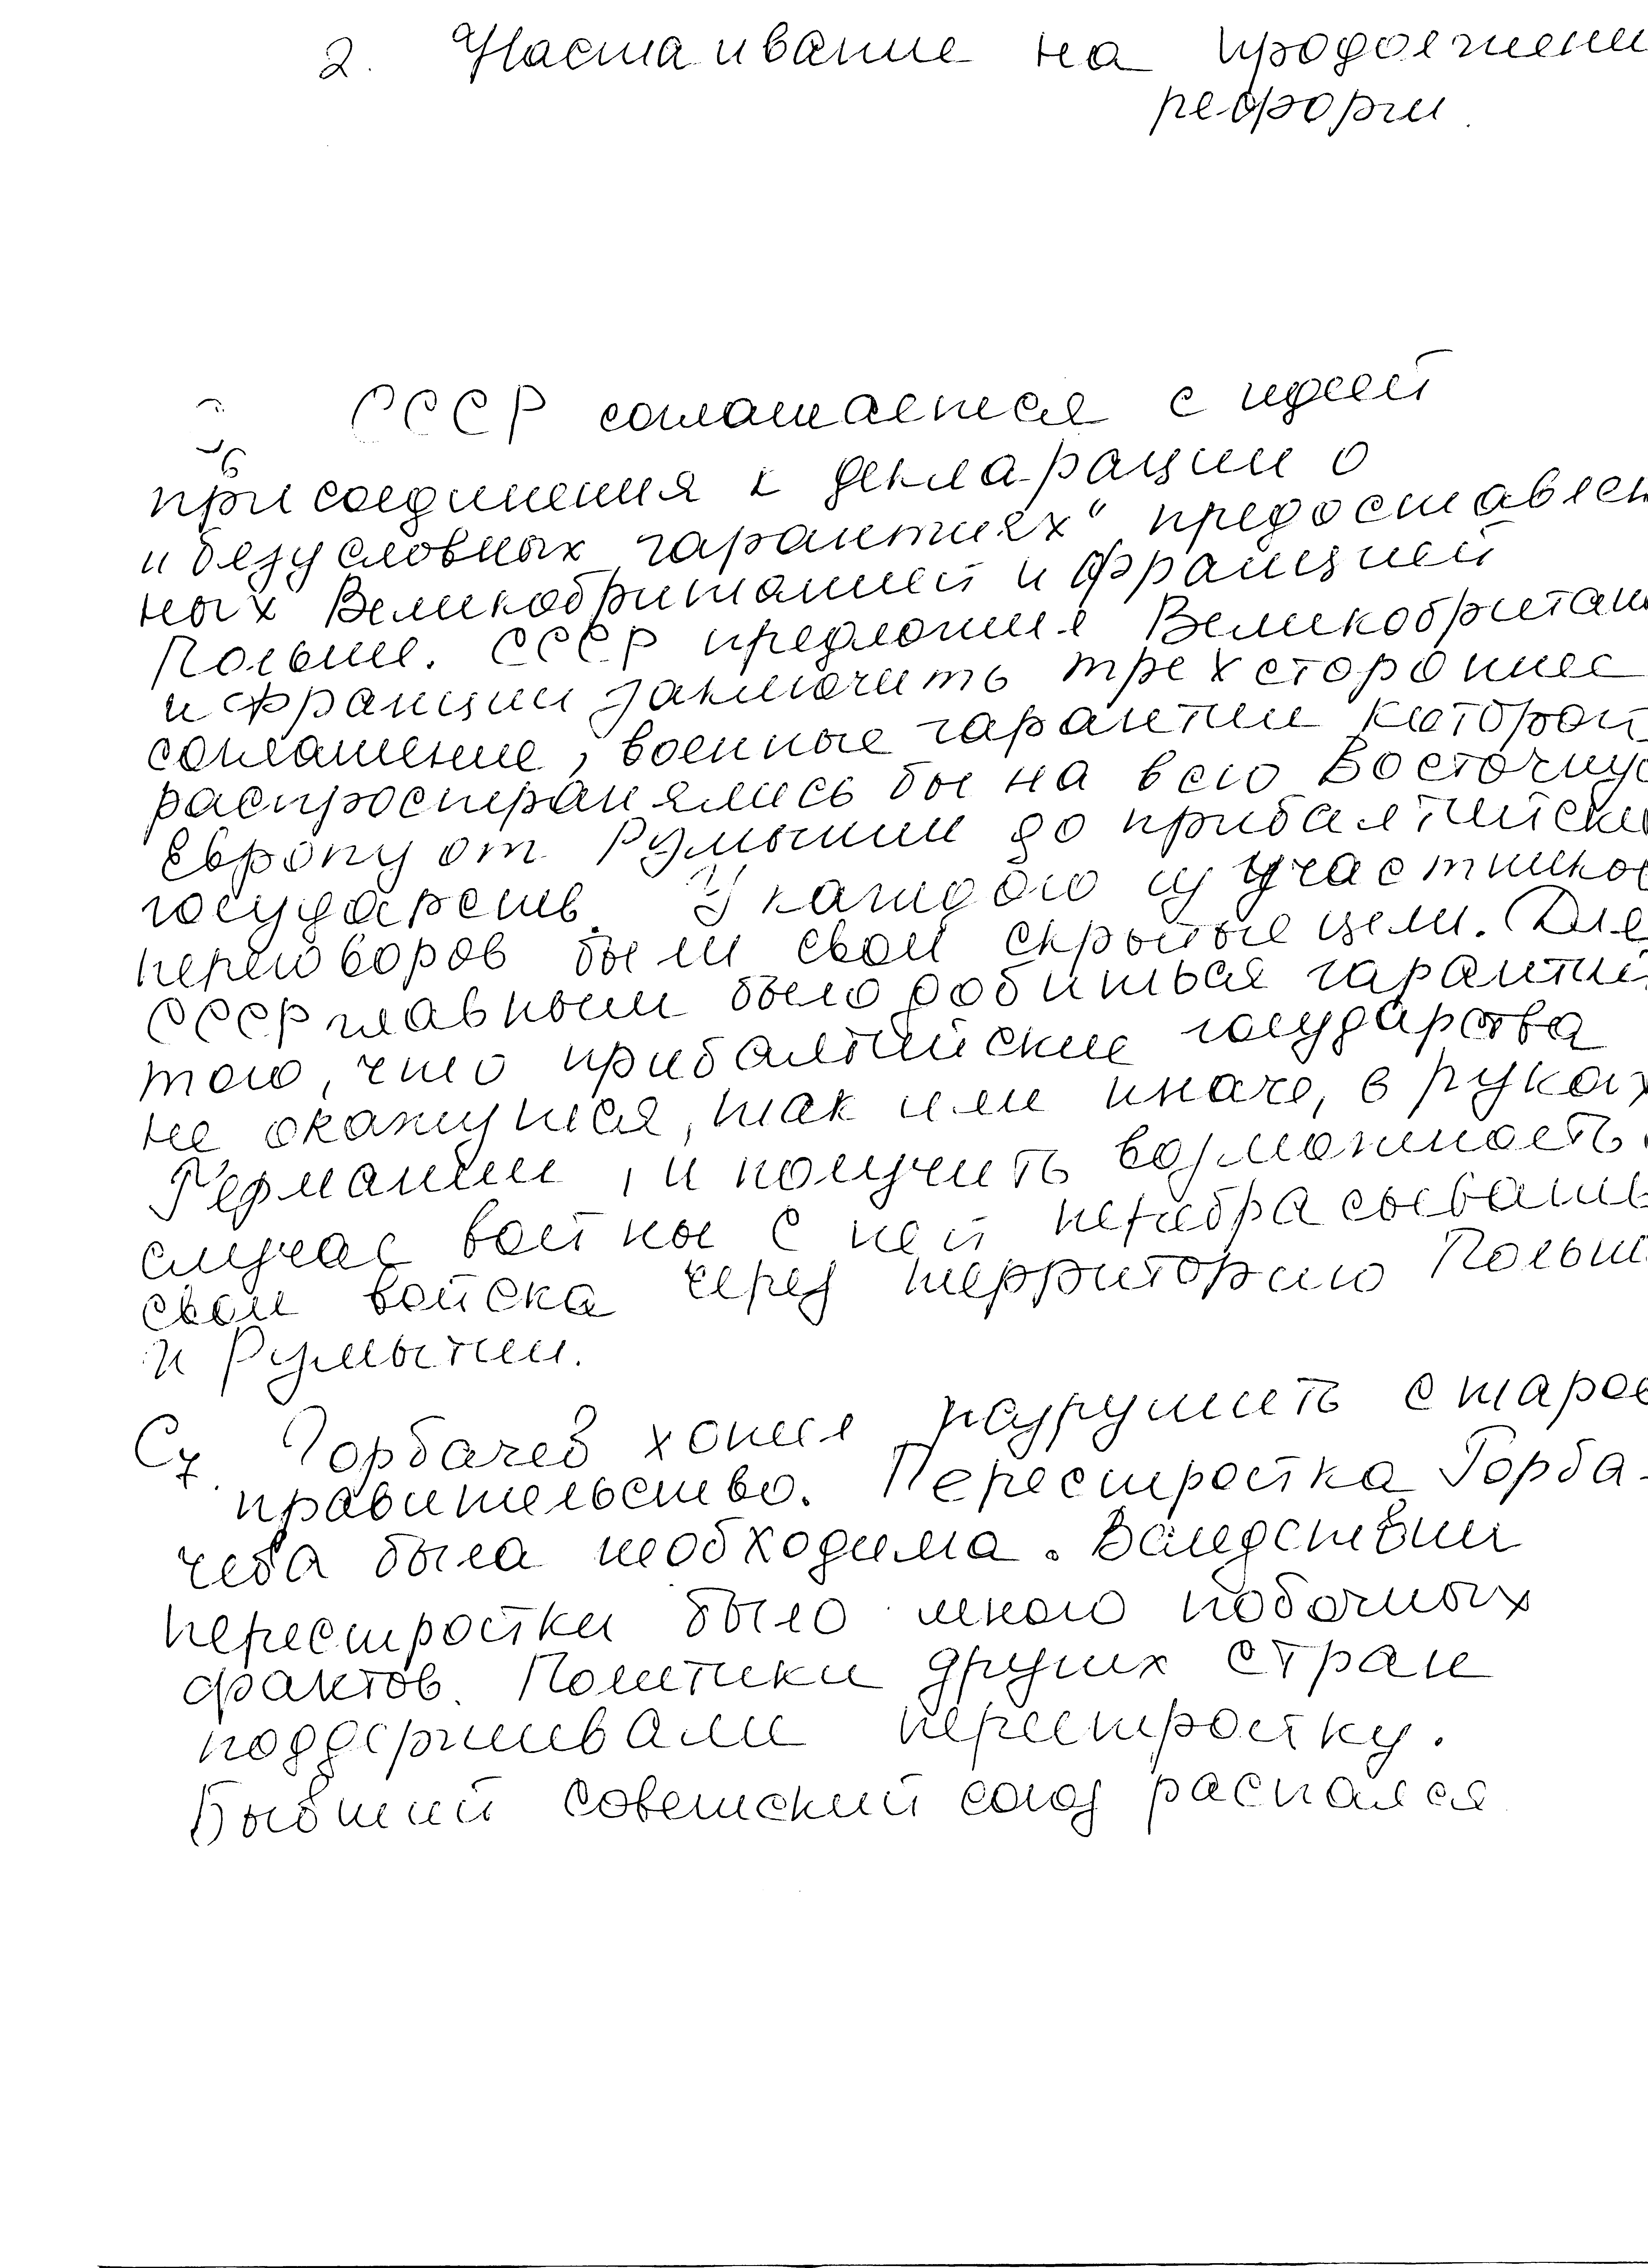 2. Настаивание на продолжени
реформ.
СССР соглашается с идеей
присоединения к декларации о
"безусловных гарантиях" предоставлен
ных Великобританией и Францией
Польше. СССР предложил Великобритан
и Франции заключить трехстороннее
соглашение, военные гарантии которой
распространялись бы на всю Восточную
Европу от Румынии до прибалтийски
государств. У каждого из участников
переговоров были свои скрытые цели. Для
СССР главным было добиться гарантий
того, что прибалтийские государства
не окажутся, так или иначе, в руках
Германии, и получить возможность
случае войны с ней перебрасывать
свои войска через территорию Польш
и Румынии.
С7. Горбачев хотел разрушить старое
правительство. Перестройка Горба-
чева была необходима. Вследствии
перестройки было много побочных
фактов. Политики других стран
поддерживали перестройку.
Бывший советский союз распался